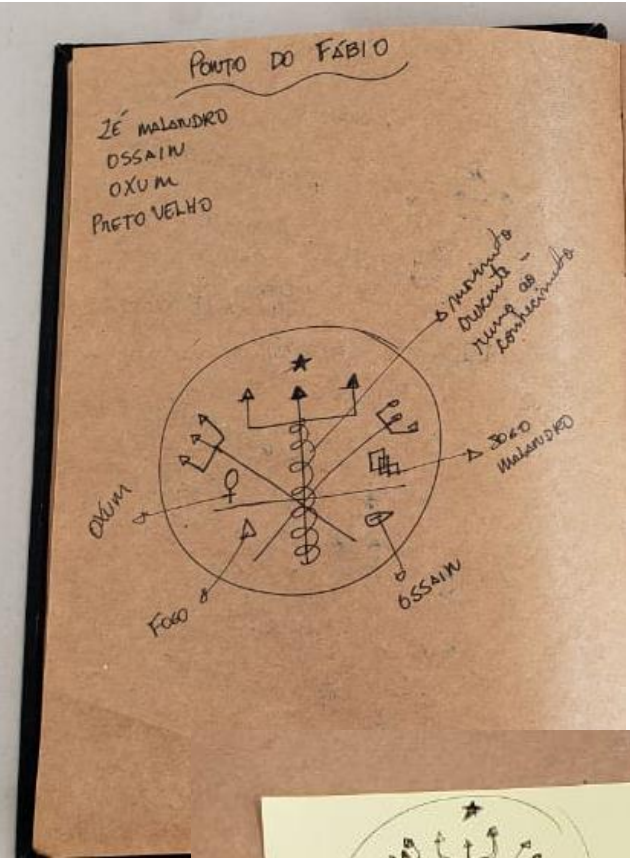 PONTO DO FÁBIO
ZÉ MALANDRO
OSSAIN
OXUM
PRETO VELHO
movimento
crescente -
rumo ao
conhecimento
JOGO
MALANDRO
OXUM
OSSAIN
FOGO